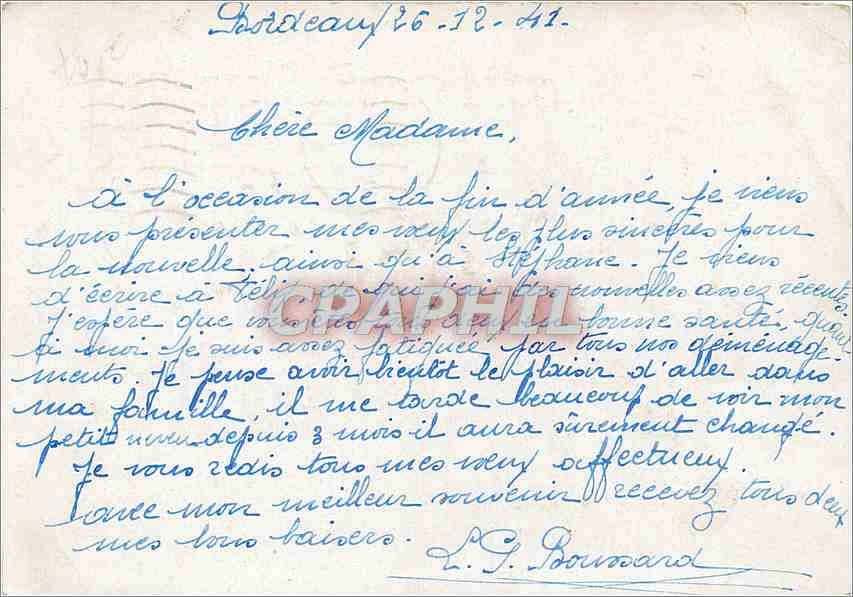 Bordeaux 26-12-41-
Chère Madame,
A l'occasion de la fin d'année, je viens
vous présenter mes vœux les plus sincères pour
la nouvelle, ainsi qu'à Stéphane. Je viens
d'écrire à de qui j'ai des nouvelles assez récentes.
J'espère que vous êtes en bonne santé, quant
à moi je suis assez fatiguée par tous nos déménage-
ments. Je pense avoir bientôt le plaisir d'aller dans
ma famille, il me tarde beaucoup de voir mon
petit neveu depuis 3 mois il aura sûrement changé.
Je vous redis tous mes vœux affectueux.
avec mon meilleur souvenir recevez tous deux
mes bons baisers.
L. G. Boussard
CPAPHIL